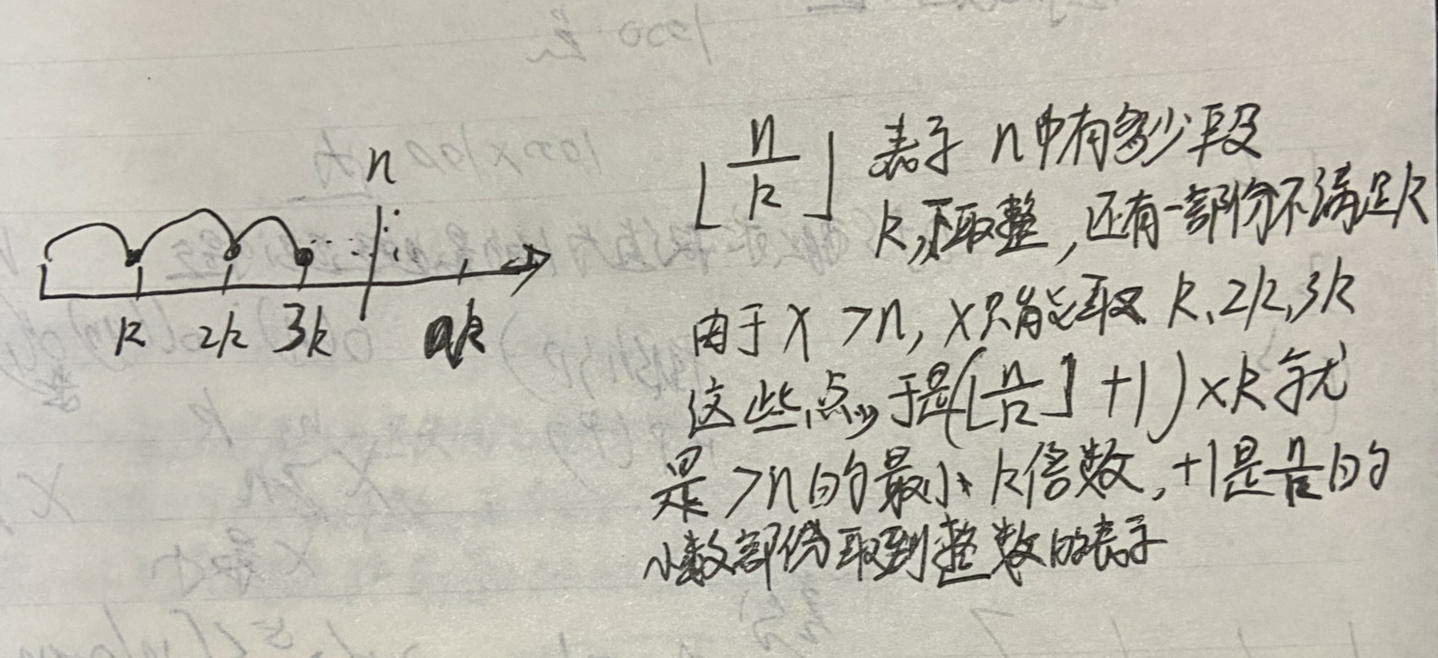 n
k 2k 3k
⌊n/k⌋ 表示 n中有多少段
k,下取整,还有一部份不满足k
由于 x >n, x只能取 k,2k,3k
这些点,于是(⌊n/k⌋+1)×k 就
是 >n的最小k倍数,+1是n/k的
小数部份取到整数的表示